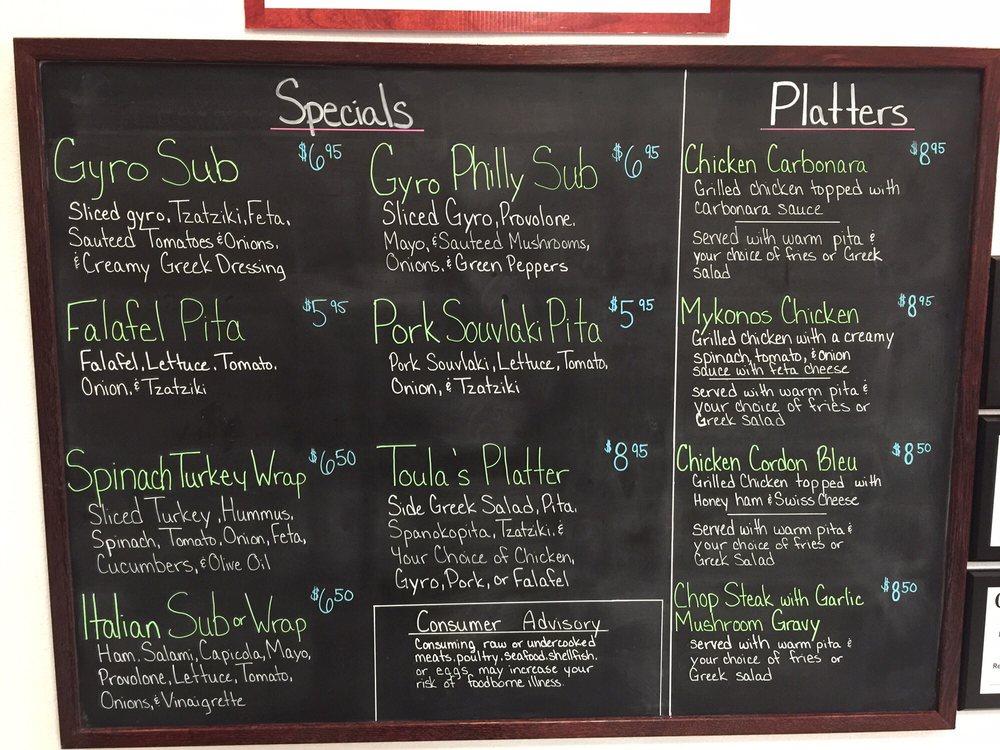 Specials
Gyro Sub $6.95
Sliced gyro, Tzatziki, Feta,
Sauteed Tomatoes & Onions,
& Creamy Greek Dressing
Falafel Pita $5.95
Falafel, Lettuce, Tomato,
Onion, & Tzatziki
Spinach Turkey Wrap $6.50
Sliced Turkey, Hummus,
Spinach, Tomato, Onion, Feta,
Cucumbers, & Olive Oil
Italian Sub or Wrap $6.50
Ham, Salami, Capicola, Mayo,
Provolone, Lettuce, Tomato,
Onions, & Vinaigrette
Gyro Philly Sub $6.95
Sliced Gyro, Provolone,
Mayo, & Sauteed Mushrooms,
Onions, & Green Peppers
Pork Souvlaki Pita $5.95
Pork Souvlaki, Lettuce, Tomato,
Onion, & Tzatziki
Toula's Platter $8.95
Side Greek Salad, Pita,
Spanokopita, Tzatziki, &
Your Choice of Chicken,
Gyro, Pork, or Falafel
Consumer Advisory
Consuming raw or undercooked
meats, poultry, seafood, shellfish,
or eggs may increase your
risk of foodborne illness.
Platters
Chicken Carbonara $8.95
Grilled chicken topped with
carbonara sauce
Served with warm pita &
your choice of fries or Greek
salad
Mykonos Chicken $8.95
Grilled chicken with a creamy
spinach, tomato, & onion
sauce with feta cheese
served with warm pita &
your choice of fries or
Greek Salad
Chicken Cordon Bleu $8.50
Grilled Chicken topped with
Honey ham & Swiss Cheese
Served with warm pita &
your choice of fries or
Greek Salad
Chop Steak with Garlic $8.50
Mushroom Gravy
served with warm pita &
your choice of fries or
Greek salad